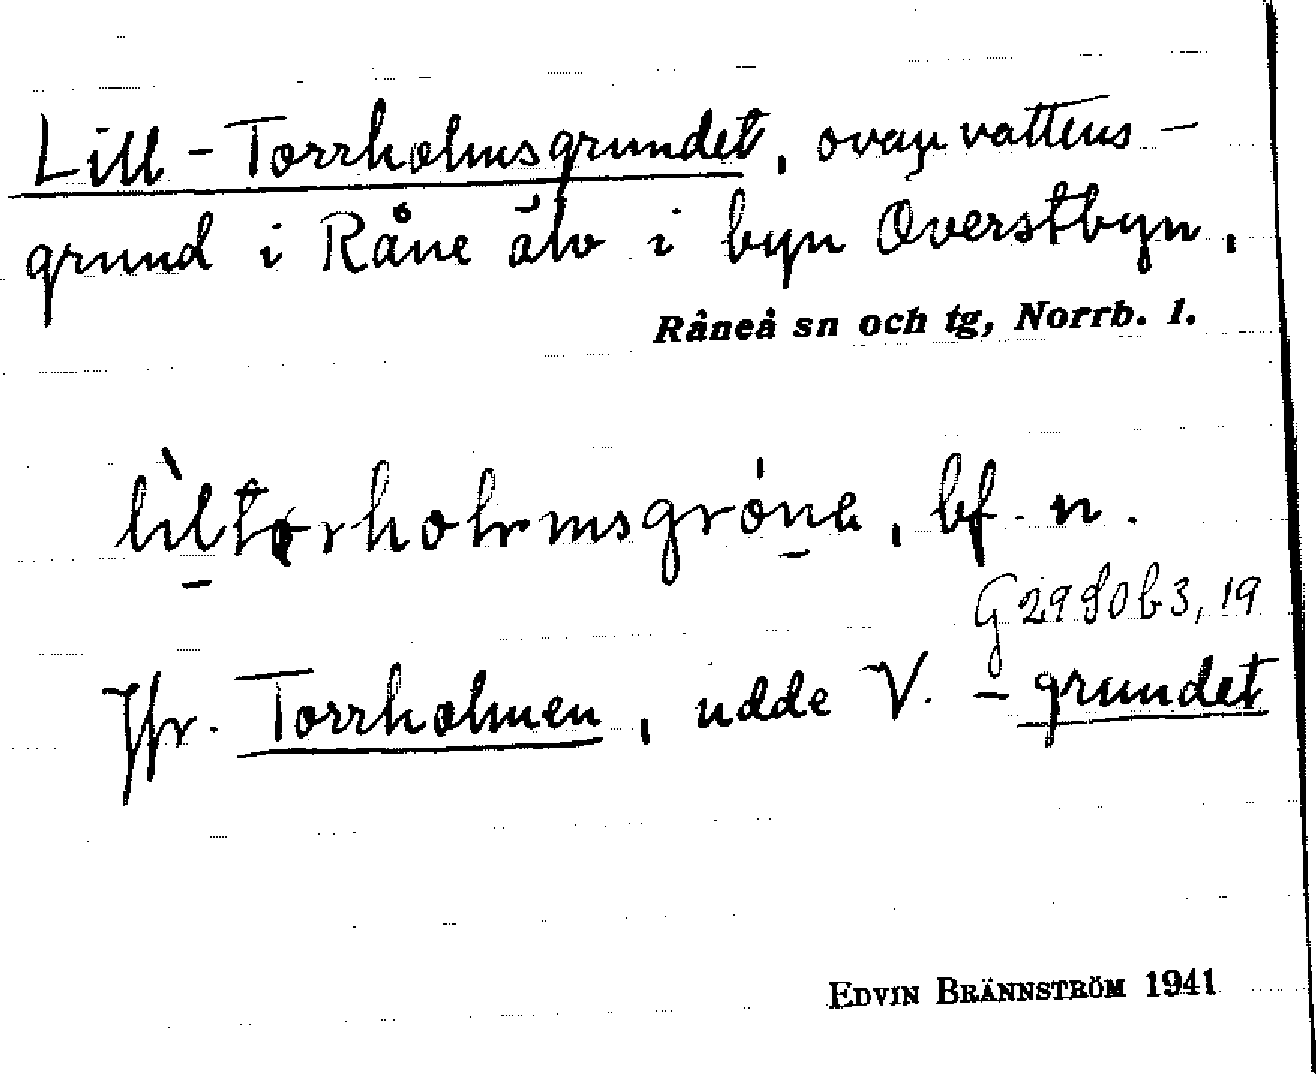 Lill-Torrholmsgrundet, ovanvattens-
grund i Råne älv i byn Överstbyn.
Råneå sn och tg, Norrb. l.
bf. n.
G 29
Jfr. Torrholmen, udde V. -grundet
EDVIN BRÄNNSTRÖM 1941